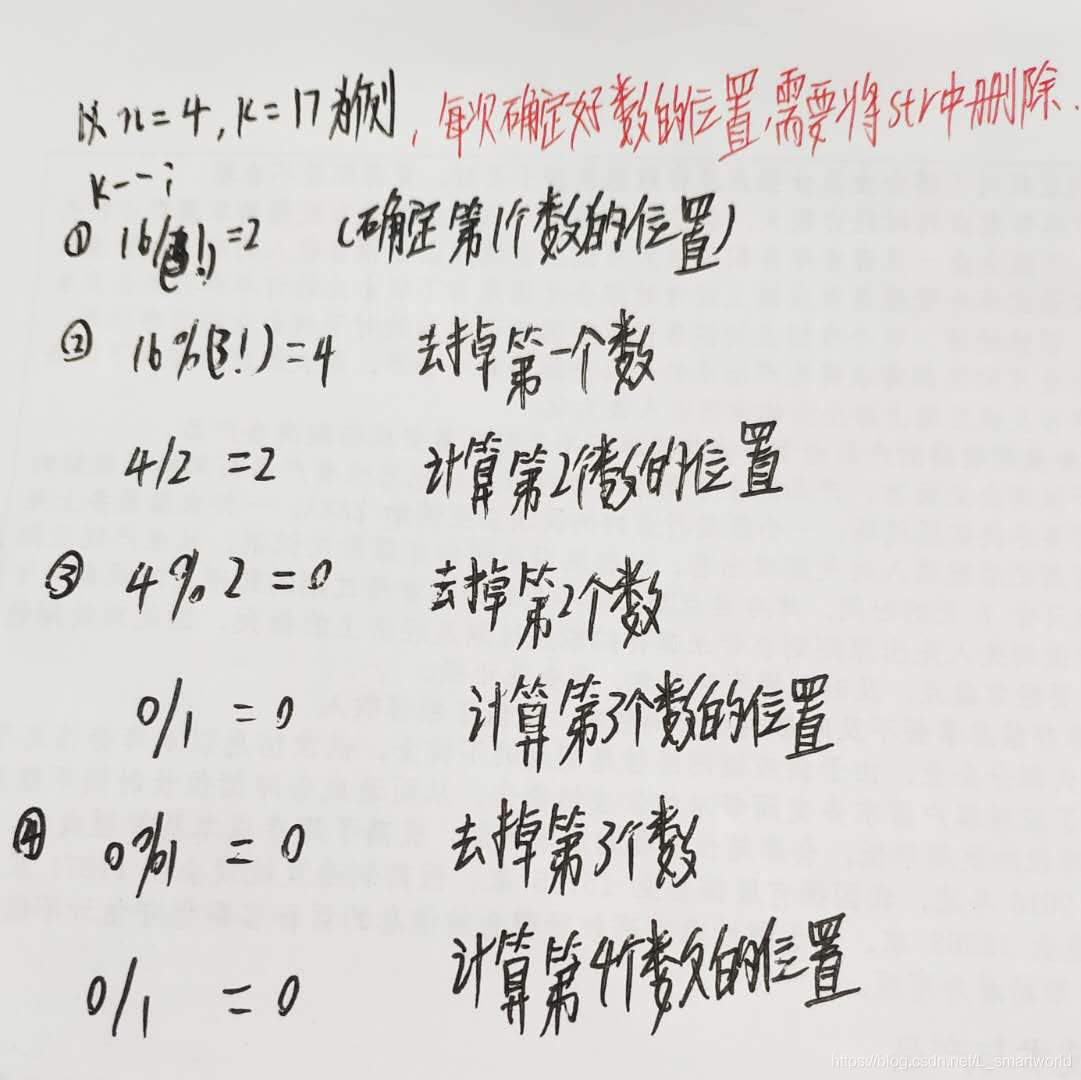 以n=4,k=17为例,每次确定好数的位置,需要将str中删除.
k--;
① 16/(3!)=2 (确定第1个数的位置)
② 16%(3!)=4 去掉第一个数
4/2 =2 计算第2个数的位置
③ 4%2=0 去掉第2个数
0/1 =0 计算第3个数的位置
④ 0%1 =0 去掉第3个数
0/1 =0 计算第4个数的位置
https://blog.csdn.net/L_smartworld